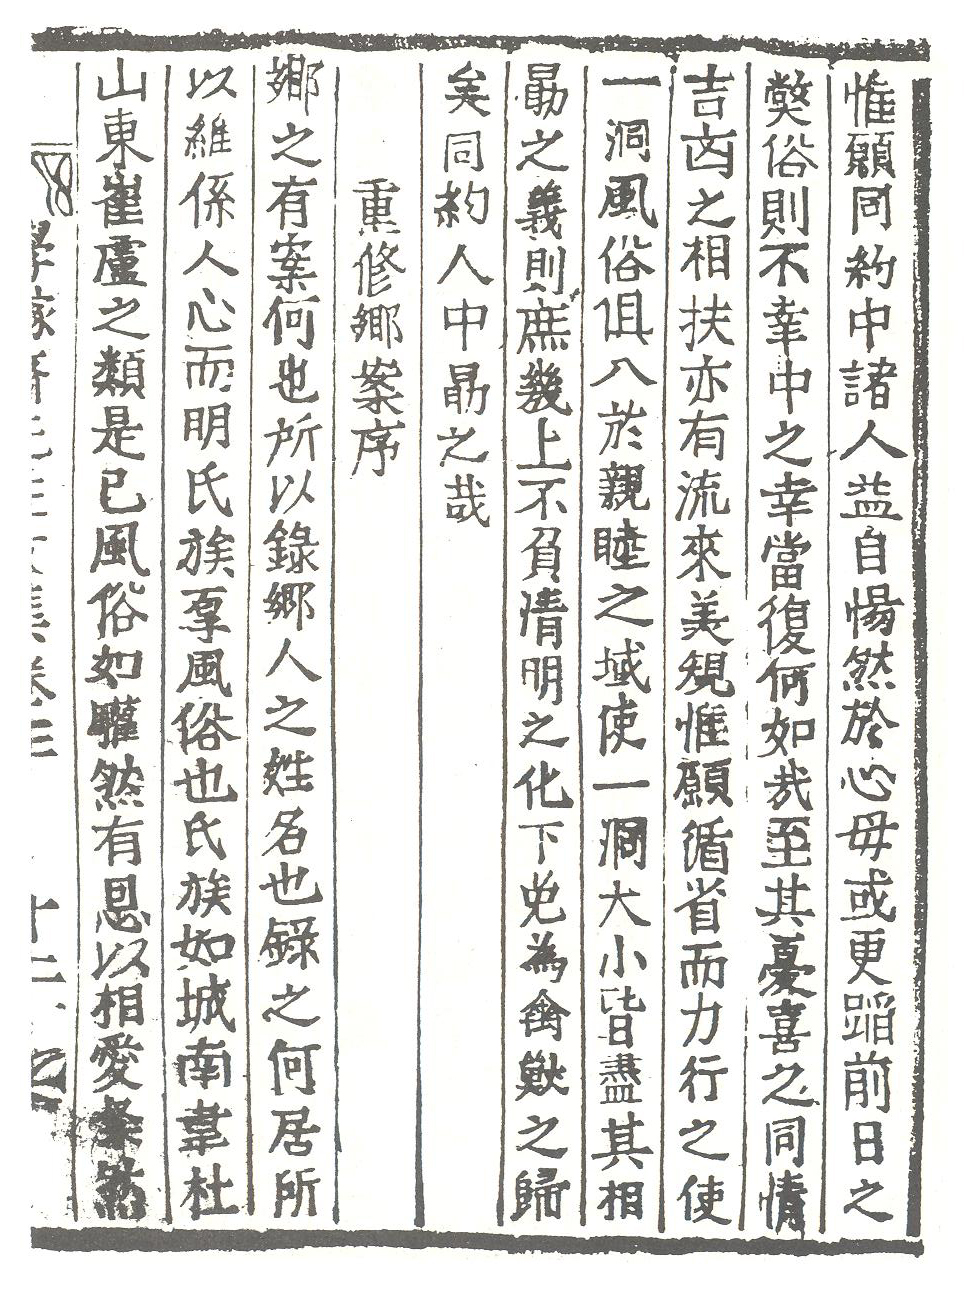 惟願同約中諸人益自惕然於心毋或更蹈前日之
獘俗則不幸中之幸當復何如哉至其憂喜之同情
吉凶之相扶亦有流來美規惟願循省而力行之使
一洞風俗俱入於親睦之域使一洞大小皆盡其相
勗之義則庶幾上不負清明之化下免為禽獸之歸
矣同約人中勗之哉
重修鄕案序
鄕之有案何也所以錄鄕人之姓名也錄之何居所
以維係人心而明氏族厚風俗也氏族如城南韋杜
山東崔盧之類是已風俗如驩然有恩以相愛粲然